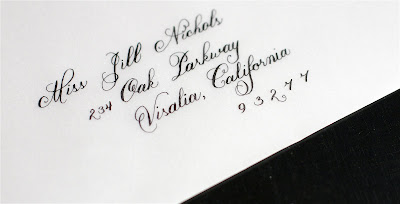 Miss Jill Nichols
234 Oak Parkway
Visalia, California
93277